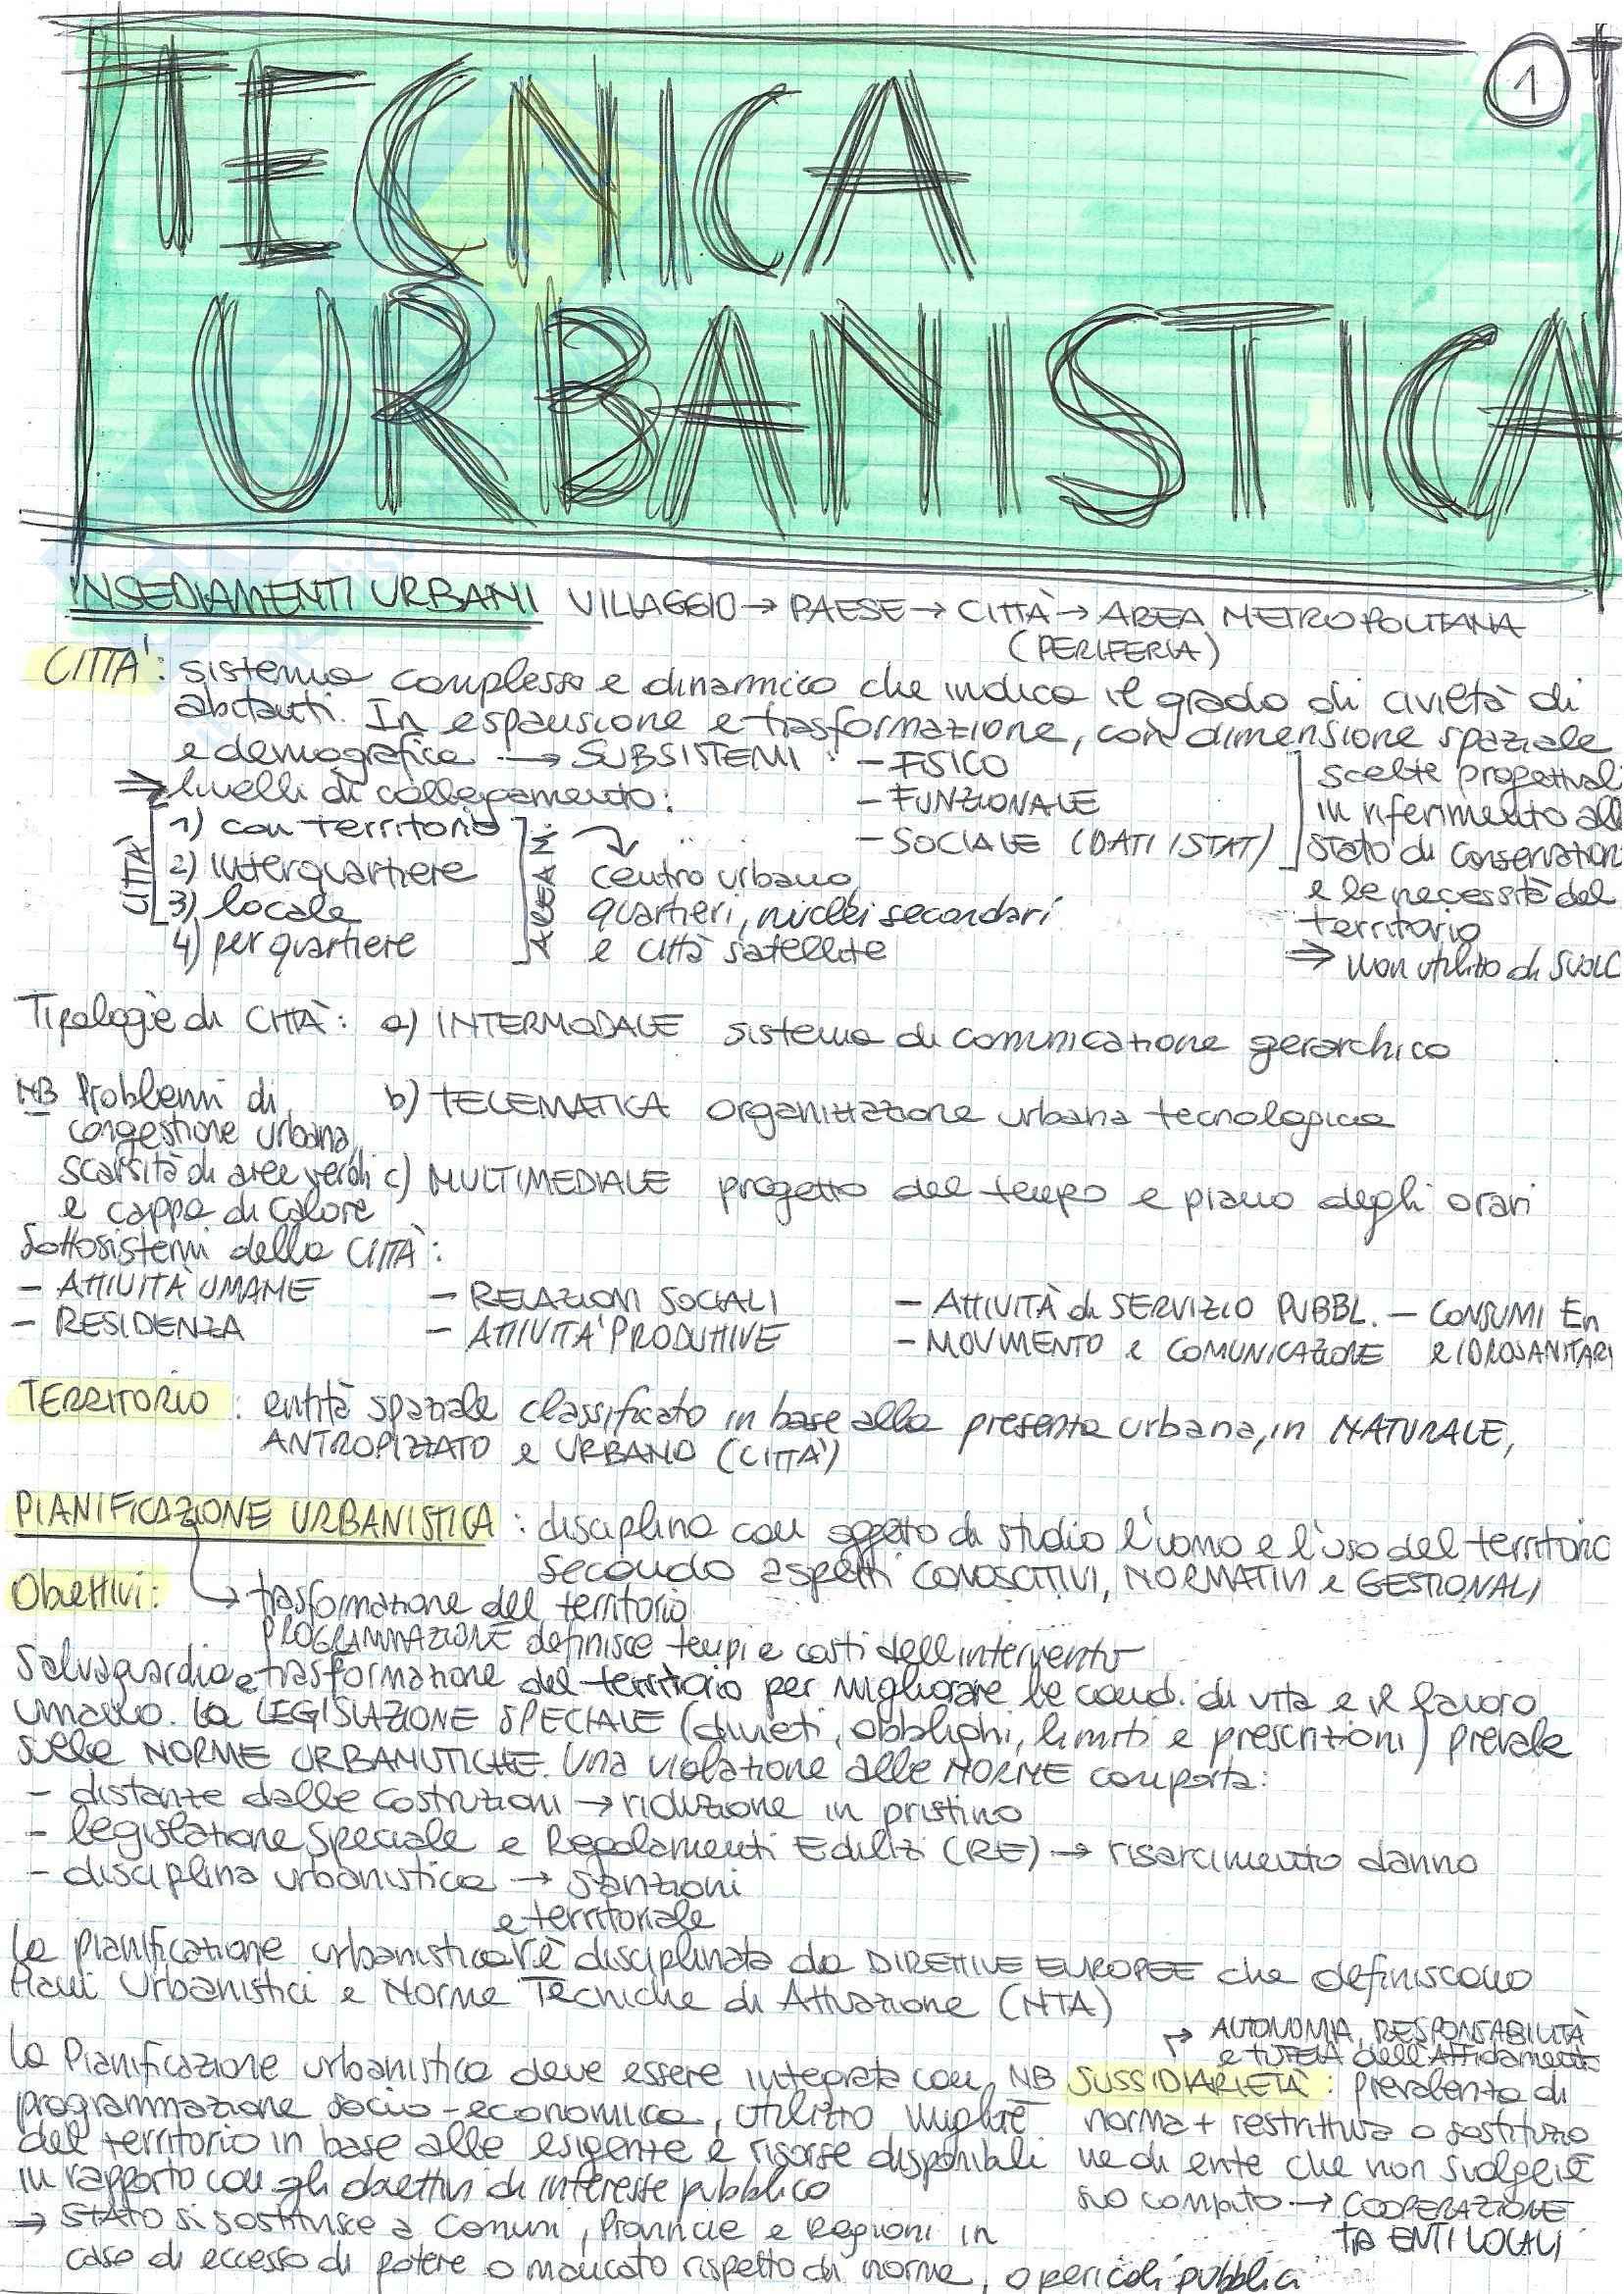 1
TECNICA
URBANISTICA
INSEDIAMENTI URBANI VILLAGGIO → PAESE → CITTÀ → AREA METROPOLITANA
(PERIFERIA)
CITTA': sistema complesso e dinamico che indica il grado di civiltà di
abitanti. In espansione e trasformazione, con dimensione spaziale
e demografica → SUBSISTEMI: - FISICO
- FUNZIONALE
- SOCIALE (DATI ISTAT)
scelte progettual
in riferimento all
stato di conservazion
e le necessità del
territorio
⇒ non utilizzo di SUOLO
⇒ livelli di collegamento:
CITTÀ
1) con territorio
2) interquartiere
3) locale
4) per quartiere
AREA M.
centro urbano,
quartieri, nuclei secondari
e città satellite
Tipologie di CITTÀ: a) INTERMODALE sistema di comunicazione gerarchico
b) TELEMATICA organizzazione urbana tecnologica
c) MULTIMEDIALE progetto del tempo e piano degli orari
NB Problemi di
congestione urbana,
scarsità di aree verdi
e cappa di calore
Sottosistemi della CITTÀ:
- ATTIVITÀ UMANE - RELAZIONI SOCIALI - ATTIVITÀ di SERVIZIO PUBBL. - CONSUMI EN
- RESIDENZA - ATTIVITA' PRODUTTIVE - MOVIMENTO e COMUNICAZIONE e IDROSANITARI
TERRITORIO: entità spaziale classificato in base alla presenza urbana, in NATURALE,
ANTROPIZZATO e URBANO (CITTA')
PIANIFICAZIONE URBANISTICA: disciplina con oggetto di studio l'uomo e l'uso del territorio
secondo aspetti CONOSCITIVI, NORMATIVI e GESTIONALI
Obiettivi: → trasformazione del territorio
PROGRAMMAZIONE definisce tempi e costi dell'intervento
Salvaguardia e trasformazione del territorio per migliorare le cond. di vita e il lavoro
umano. La LEGISLAZIONE SPECIALE (divieti, obblighi, limiti e prescrizioni) prevale
sulle NORME URBANISTICHE. Una violazione alle NORME comporta:
- distanze dalle costruzioni → riduzione in pristino
- legislazione speciale e Regolamenti Edilizi (RE) → risarcimento danno
- disciplina urbanistica → sanzioni
e territoriale
La pianificazione urbanistica è disciplinata da DIRETTIVE EUROPEE che definiscono
Piani Urbanistici e Norme Tecniche di Attuazione (NTA)
La Pianificazione urbanistica deve essere integrata con
programmazione socio-economica, utilizzo migliore
del territorio in base alle esigenze e risorse disponibili
in rapporto con gli obiettivi di interesse pubblico
⇒ STATO si sostituisce a Comuni, Provincie e Regioni in
caso di eccesso di potere o mancato rispetto di norme, o pericoli pubblici
→ AUTONOMIA, RESPONSABILITÀ
e TUTELA dell'Affidamento
NB SUSSIDIARIETÀ: prevalenza di
norma + restrittiva o sostituzio
ne di ente che non svolge il
suo compito → COOPERAZIONE
tra ENTI LOCALI